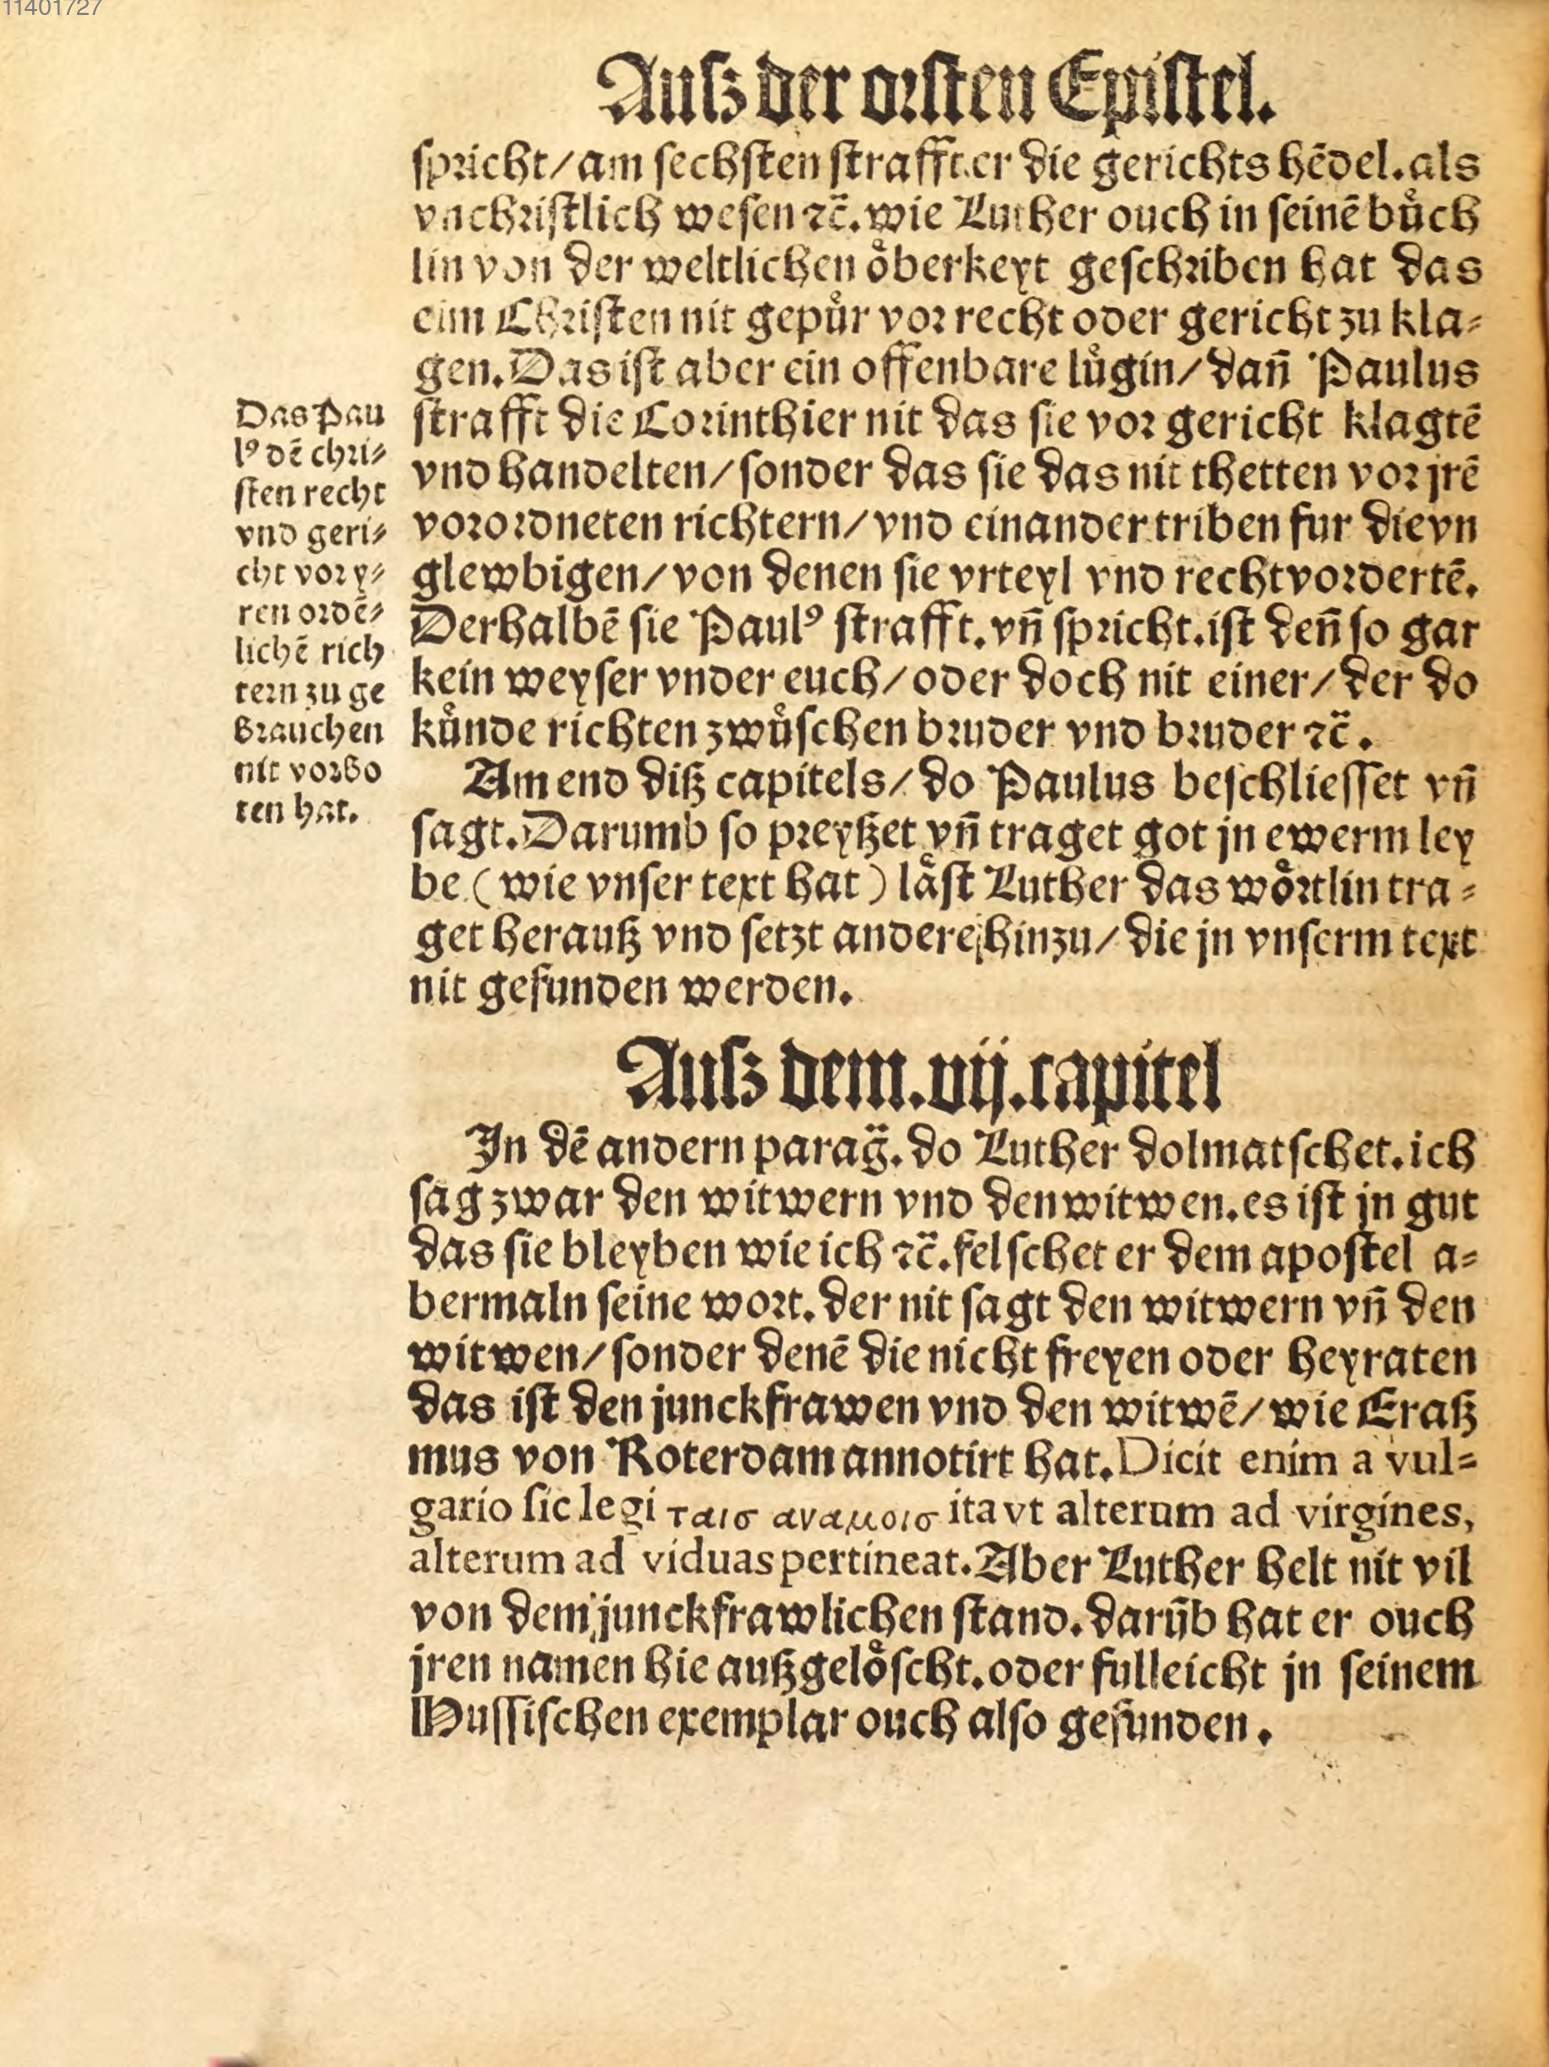 11401727
Auſz der orſten Epiſtel.
ſpricht/am ſechſten ſtrafft.er die gerichts hēdel.als
vnchriſtlich weſen ⁊c̄.wie Luther ouch in ſeinē bůch
lin von der weltlichen oͤberkeyt geſchriben hat das
eim Chriſten nit gepuͤr vor recht oder gericht zu kla⸗
gen.Das iſt aber ein offenbare luͤgin/dañ Paulus
ſtrafft die Corinthier nit das ſie vor gericht klagtē
vnd handelten/ſonder das ſie das nit thetten vor jrē
vorordneten richtern/vnd einander triben fur die vn
glewbigen/von denen ſie vrteyl vnd recht vordertē.
Derhalbē ſie Paulꝰ ſtrafft.vñ ſpricht.iſt deñ ſo gar
kein weyſer vnder euch/oder doch nit einer/der do
kuͤnde richten zwuͤſchen bruder vnd bruder ⁊c̄.
Am end diß capitels/do Paulus beſchlieſſet vñ
ſagt.Darumb ſo preyßet vñ traget got jn ewerm ley
be (wie vnſer text hat) laͤſt Luther das woͤrtlin tra⸗
get herauß vnd ſetzt andere hinzu/die jn vnſerm text
nit gefunden werden.
Das Pau
lꝰ dē chri⸗
ſten recht
vnd geri⸗
cht vor y⸗
ren ordē⸗
lichē rich
tern zu ge
brauchen
nit vorbo
ten hat.
Auſz dem.vij.capitel
In dē andern parag̃.do Luther dolmatſchet.ich
ſag zwar den witwern vnd den witwen.es iſt jn gut
das ſie bleyben wie ich ⁊c̄.felſchet er dem apoſtel a⸗
bermaln ſeine wort.der nit ſagt den witwern vñ den
witwen/ſonder denē die nicht freyen oder heyraten
das iſt den junckfrawen vnd den witwē/wie Eraß
mus von Roterdam annotirt hat.Dicit enim a vul⸗
gario ſic legi ταισ αναμοισ ita vt alterum ad virgines,
alterum ad viduas pertineat.Aber Luther helt nit vil
von dem junckfrawlichen ſtand.darūb hat er ouch
jren namen hie außgeloͤſcht.oder fulleicht jn ſeinem
Huſſiſchen exemplar ouch alſo gefunden.